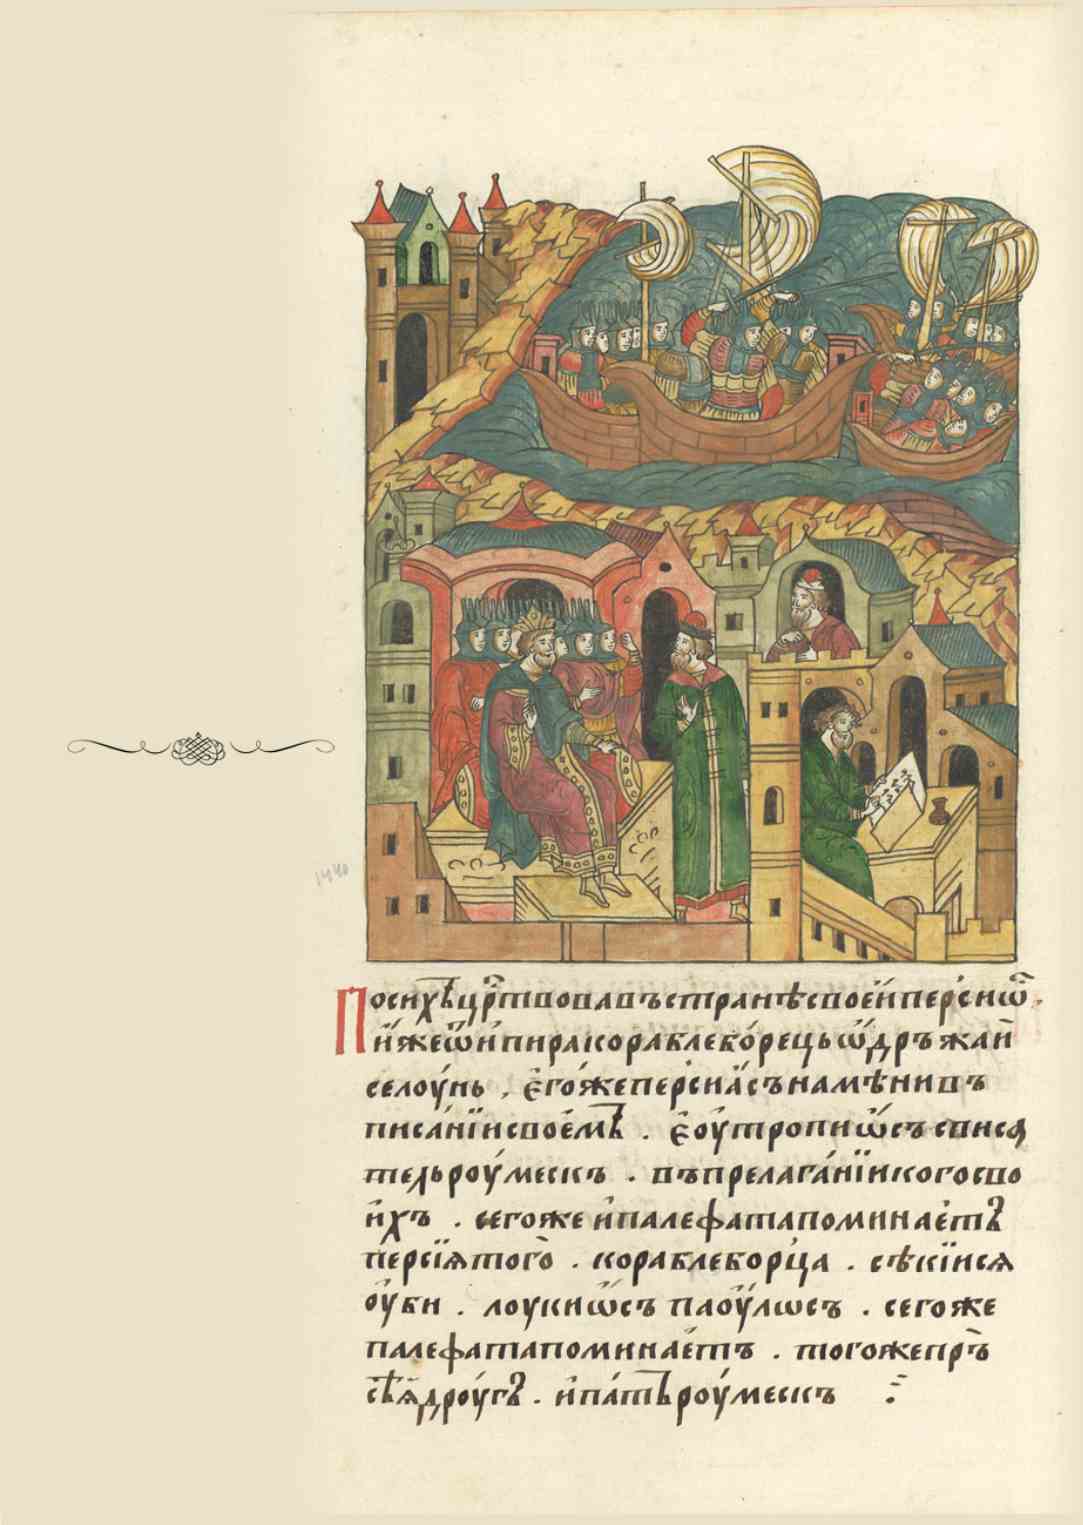 Посихъ црⷭ҇твова въстранѣсвоеи персиѡⷩ҇
и иже ѿ и пираікораблебо́рець ѡ҆дръжаи҆
селоу́нь, є҆го́жеперсиѧ҆съ намѣнивъ
писа́нїисвое́мъ. є҆оу҆тропиѡ҆съ съписа
тельроу́мескъ. въпрелага́нїикогосво
и҆хъ. сегоже и҆палефатапоминае́тъ
персїѧтого̀. кораблеборца. сѣкїисѧ
оу҆би. лоукиѡ҆съ паоу҆лѡсъ. сегоже
палефатапоминае́тъ. тогожепрⷭ҇ъ
двѣ́ѧ дроуго҆. и҆па́тъ роу́мескъ
1440